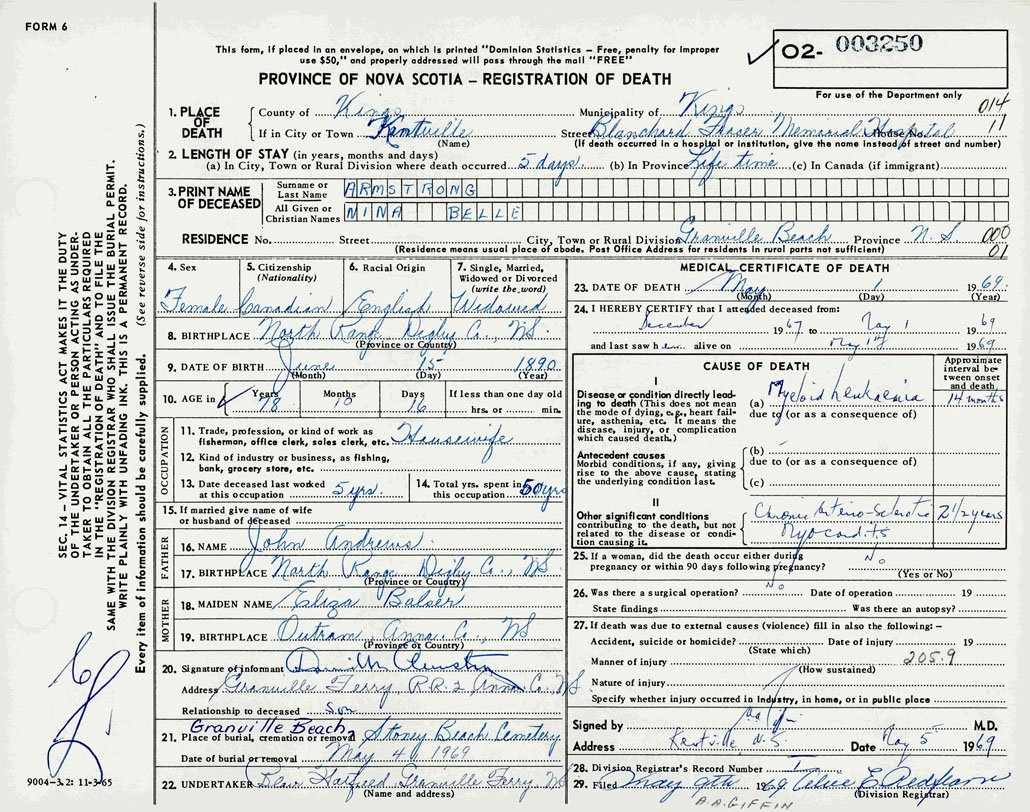 FORM 6
This form, if placed in an envelope, on which is printed "Dominion Statistics – Free, penalty for improper
use $50," and properly addressed will pass through the mail "FREE"
PROVINCE OF NOVA SCOTIA – REGISTRATION OF DEATH
O2- 003250
For use of the Department only
014
11
1. PLACE OF DEATH
County of Kings Municipality of Kings
If in City or Town Kentville Street Blanchard Fraser Memorial Hospital House No.
(Name) (If death occurred in a hospital or institution, give the name instead of street and number)
2. LENGTH OF STAY (in years, months and days)
(a) In City, Town or Rural Division where death occurred 5 days. (b) In Province Life time (c) In Canada (if immigrant)
3. PRINT NAME OF DECEASED
Surname or Last Name ARMSTRONG
All Given or Christian Names NINA BELLE
RESIDENCE No. Street City, Town or Rural Division Granville Beach Province N.S. 000
(Residence means usual place of abode. Post Office Address for residents in rural parts not sufficient) 01
4. Sex Female
5. Citizenship (Nationality) Canadian
6. Racial Origin English
7. Single, Married, Widowed or Divorced (write the word) Widowed
8. BIRTHPLACE North Range Digby Co., NS
(Province or Country)
9. DATE OF BIRTH June 15 1890
(Month) (Day) (Year)
10. AGE in Years 78 Months 10 Days 16 If less than one day old hrs. or min.
OCCUPATION
11. Trade, profession, or kind of work as fisherman, office clerk, sales clerk, etc. Housewife
12. Kind of industry or business, as fishing, bank, grocery store, etc.
13. Date deceased last worked at this occupation 5 yrs.
14. Total yrs. spent in this occupation 50 yrs
15. If married give name of wife or husband of deceased
FATHER
16. NAME John Andrews
17. BIRTHPLACE North Range Digby Co., NS
(Province or Country)
MOTHER
18. MAIDEN NAME Eliza Balser
19. BIRTHPLACE Outram, Anna. Co., NS
(Province or Country)
20. Signature of informant
Address Granville Ferry R.R.2 Anna Co. NS.
Relationship to deceased son
Granville Beach
21. Place of burial, cremation or removal Stoney Beach Cemetery
Date of burial or removal May 4, 1969
22. UNDERTAKER Hatfield, Granville Ferry, NS
(Name and address)
MEDICAL CERTIFICATE OF DEATH
23. DATE OF DEATH May 1 1969.
(Month) (Day) (Year)
24. I HEREBY CERTIFY that I attended deceased from:
December 1967 to May 1 1969
and last saw her alive on May 1 1969.
CAUSE OF DEATH
Approximate interval between onset and death
I
Disease or condition directly leading to death (This does not mean the mode of dying, e.g., heart failure, asthenia, etc. It means the disease, injury, or complication which caused death.)
(a) Myeloid Leukaemia 14 months
due to (or as a consequence of)
Antecedent causes
Morbid conditions, if any, giving rise to the above cause, stating the underlying condition last.
(b)
due to (or as a consequence of)
(c)
II
Other significant conditions contributing to the death, but not related to the disease or condition causing it.
Chronic Arterio-Sclerotic Myocarditis 2 1/2 years
25. If a woman, did the death occur either during pregnancy or within 90 days following pregnancy? No
(Yes or No)
26. Was there a surgical operation? No Date of operation 19
State findings Was there an autopsy?
27. If death was due to external causes (violence) fill in also the following: –
Accident, suicide or homicide? Date of injury 19
(State which)
Manner of injury 205.9
(How sustained)
Nature of injury
Specify whether injury occurred in industry, in home, or in public place
Signed by M.D.
Address Kentville N.S. Date May 5 1969
28. Division Registrar's Record Number
29. Filed May 9th 1969 Alice E. Redfearn
(Division Registrar)
A.A. GIFFIN
SEC. 14 – VITAL STATISTICS ACT MAKES IT THE DUTY
OF THE UNDERTAKER OR PERSON ACTING AS UNDER-
TAKER TO OBTAIN ALL THE PARTICULARS REQUIRED
IN THE "REGISTRATION OF DEATH" AND TO FILE THE
SAME WITH THE DIVISION REGISTRAR WHO SHALL ISSUE THE BURIAL PERMIT.
WRITE PLAINLY WITH UNFADING INK. THIS IS A PERMANENT RECORD.
Every item of information should be carefully supplied. (See reverse side for instructions.)
9004–3.2: 11-3-65